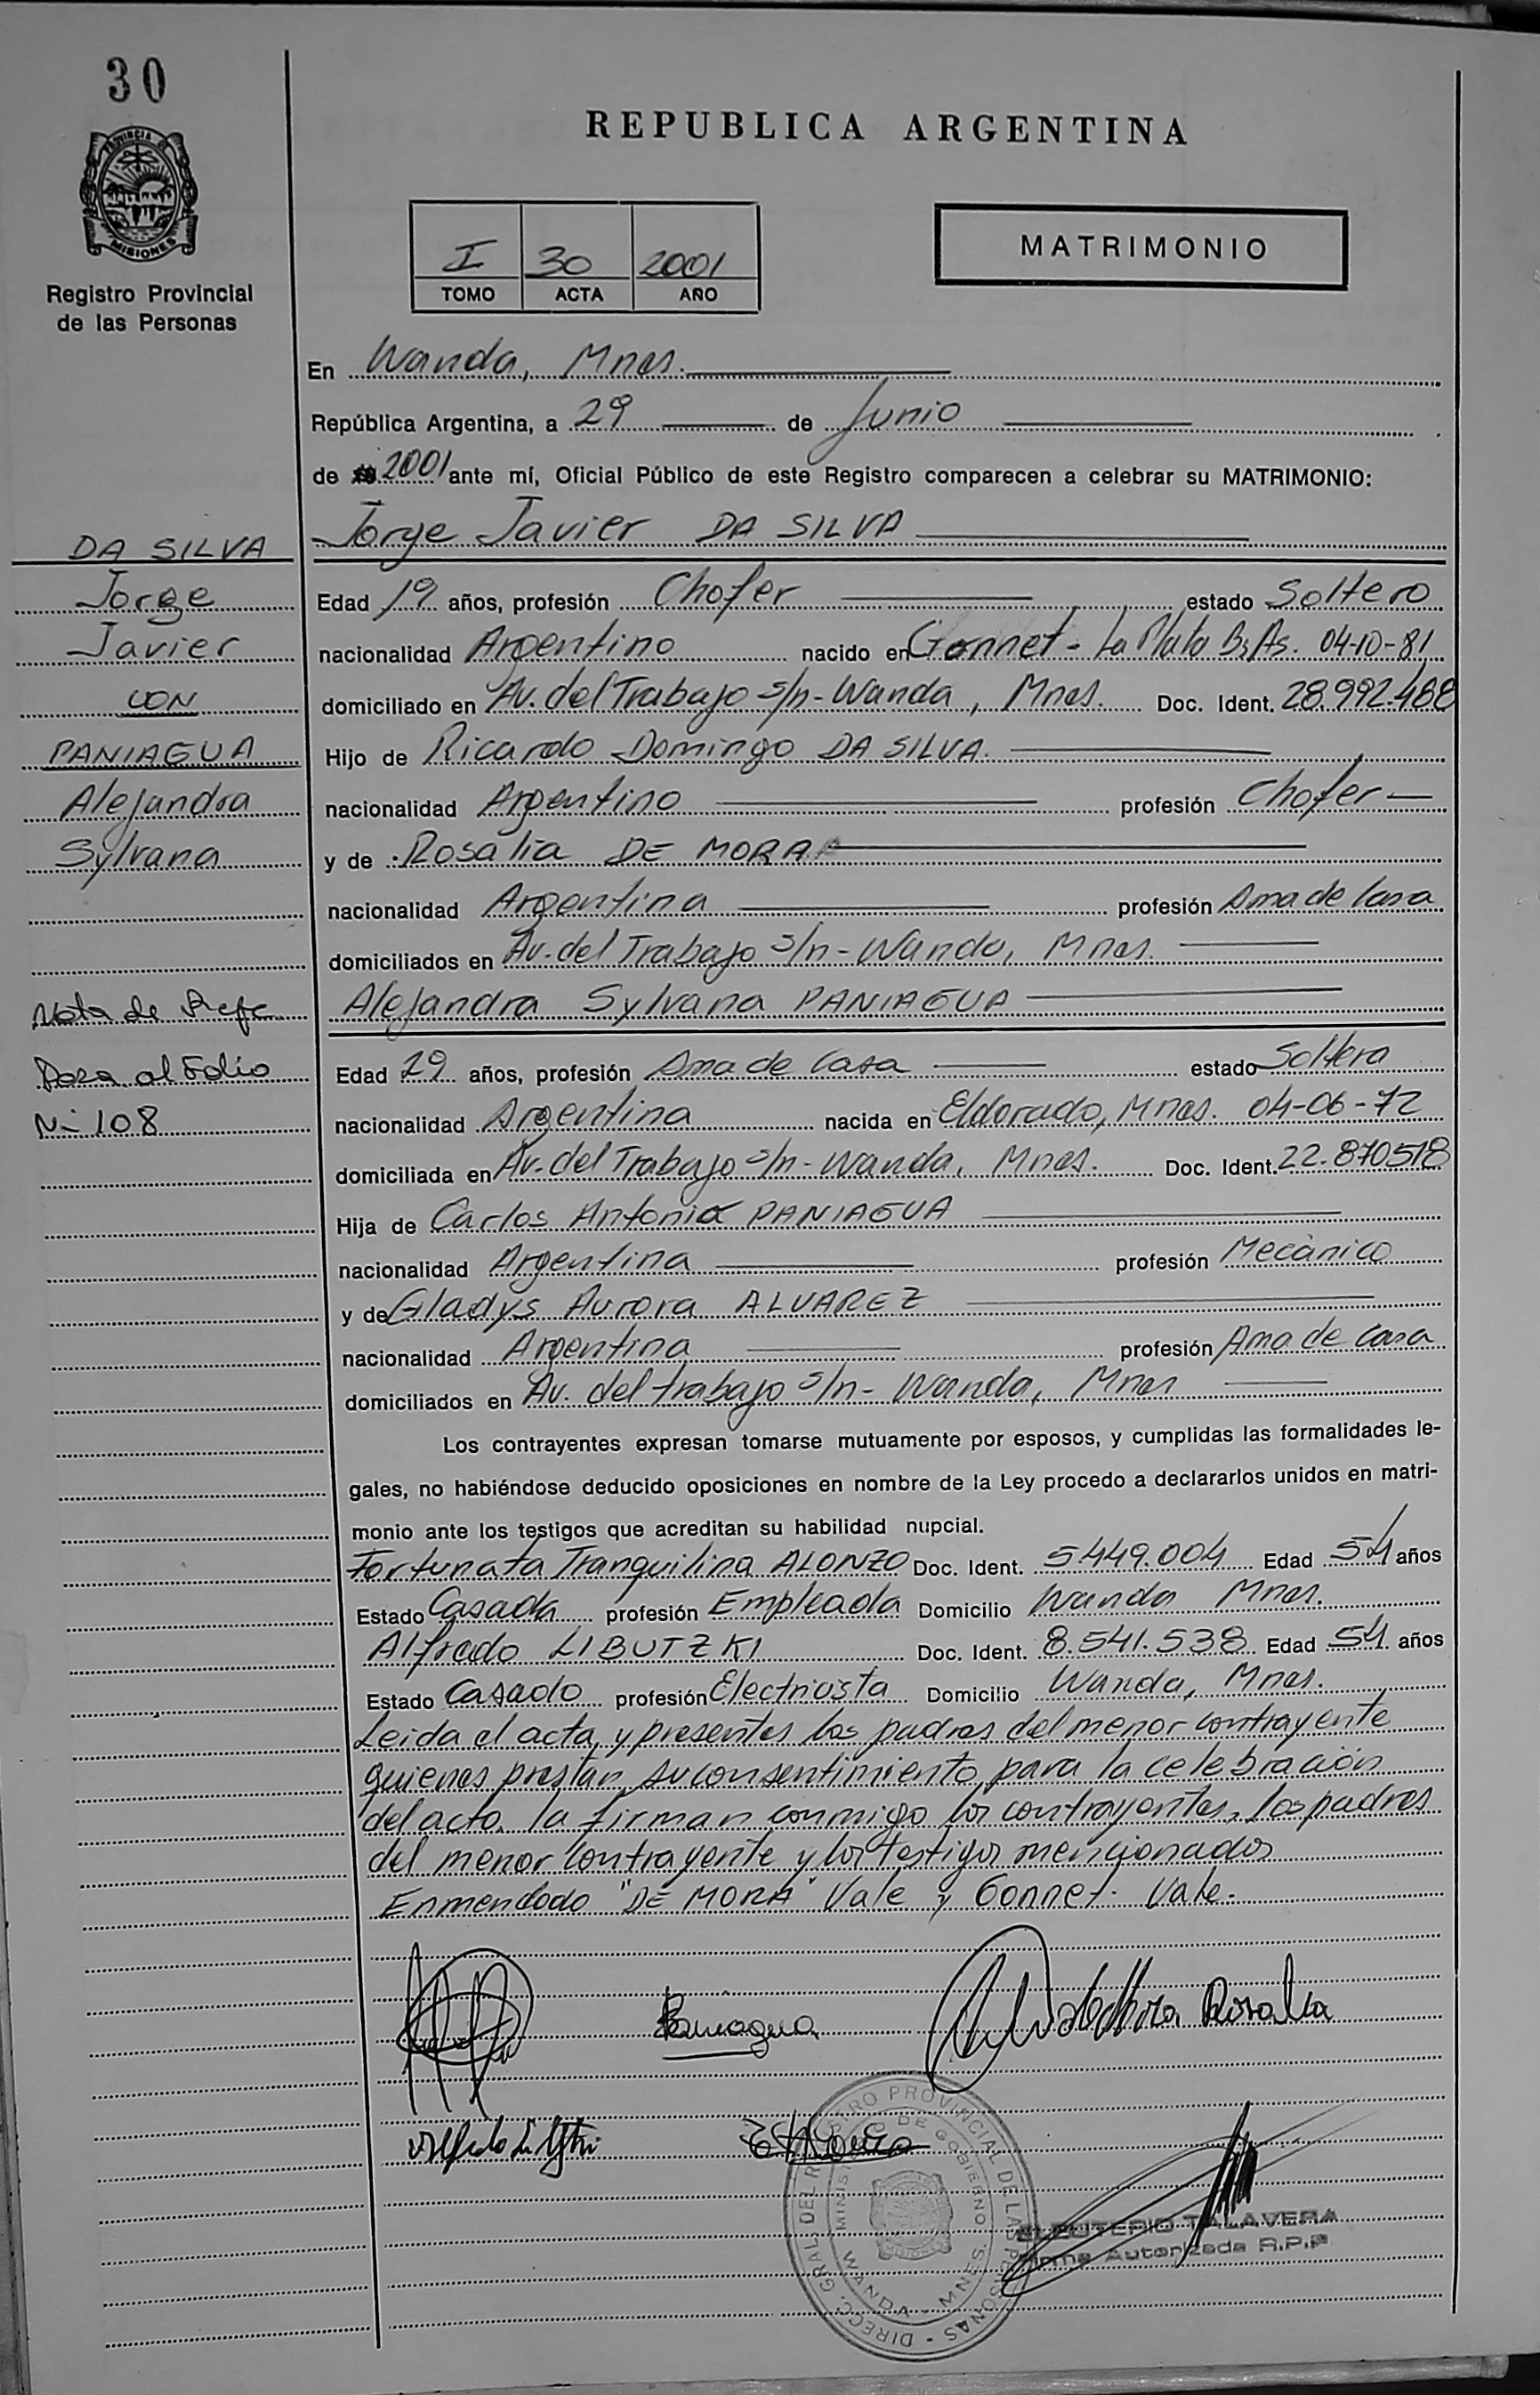 30
PROVINCIA DE
MISIONES
Registro Provincial
de las Personas
REPUBLICA ARGENTINA
I 30 2001
TOMO ACTA AÑO
MATRIMONIO
En Wanda, Mnes.
República Argentina, a 29 de Junio
de 2001 ante mí, Oficial Público de este Registro comparecen a celebrar su MATRIMONIO:
Jorge Javier DA SILVA
DA SILVA
Jorge
Javier
CON
PANIAGUA
Alejandra
Sylvana
Nota de Refe
Pasa al Folio
Nº 108
Edad 19 años, profesión Chofer estado Soltero
nacionalidad Argentino nacido en Gonnet - La Plata Bs.As. 04-10-81
domiciliado en Av. del Trabajo s/n - Wanda, Mnes. Doc. Ident. 28.992.488
Hijo de Ricardo Domingo DA SILVA.
nacionalidad Argentino profesión Chofer
y de Rosalia DE MORA
nacionalidad Argentina profesión Ama de Casa
domiciliados en Av. del Trabajo s/n - Wanda, Mnes.
Alejandra Sylvana PANIAGUA
Edad 29 años, profesión Ama de Casa estado Soltera
nacionalidad Argentina nacida en Eldorado, Mnes. 04-06-72
domiciliada en Av. del Trabajo s/n - Wanda, Mnes. Doc. Ident. 22.870518
Hija de Carlos Antonio PANIAGUA
nacionalidad Argentina profesión Mecànico
y de Gladys Aurora ALVAREZ
nacionalidad Argentina profesión Ama de Casa
domiciliados en Av. del trabajo s/n - Wanda, Mnes
Los contrayentes expresan tomarse mutuamente por esposos, y cumplidas las formalidades le-
gales, no habiéndose deducido oposiciones en nombre de la Ley procedo a declararlos unidos en matri-
monio ante los testigos que acreditan su habilidad nupcial.
Fortunata Tranquilina ALONZO Doc. Ident. 5.449.004 Edad 54 años
Estado Casada profesión Empleada Domicilio Wanda Mnes.
Alfredo LIBUTZKI Doc. Ident. 8.541.538 Edad 54 años
Estado Casado profesión Electricista Domicilio Wanda, Mnes.
Leida el acta, y presentes los padres del menor contrayente
quienes prestan su consentimiento para la celebración
del acto, la firman conmigo los contrayentes, los padres
del menor contrayente y los testigos mencionados
Enmendado "DE MORA" Vale y Gonnet. Vale.
Paniagua
de Mora Rosalia
DIREC. GRAL. DEL REGISTRO PROVINCIAL DE LAS PERSONAS
MINISTERIO DE GOBIERNO
WANDA - MNES.
ELEUTERIO TALAVERA
Firma Autorizada R.P.P